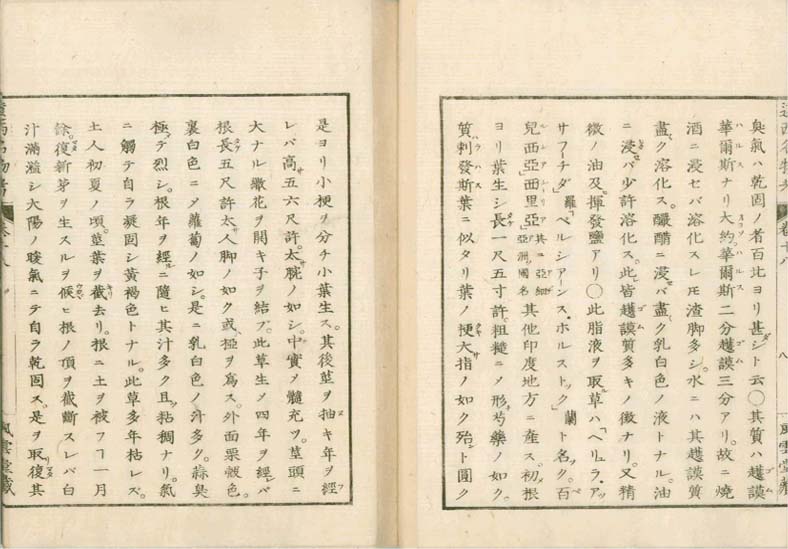 遠西名物考 卷十八 八 風雲堂藏
臭氣ハ乾固ノ者百比ヨリ甚シト云〇其質ハ護謨
華爾斯ナリ大約華爾斯二分護謨三分アリ。故ニ燒
酒ニ浸セバ溶化スレ𪜈渣脚多シ。水ニハ其護謨質
盡ク溶化ス。釅醋ニ浸バ盡ク乳白色ノ液トナル。油
ニ浸バ少許溶化ス。此皆護謨質多キノ徴ナリ。又精
微ノ油及揮發鹽アリ〇此脂液ヲ取草ハ「ヘリュラ・アッ
サフーチダ」羅「ペルシアーンス・ホルストック」蘭ト名ク。百
兒西亞「亞西里亞」其ニ亞細亞洲ノ國名其他印度地方ニ産ス。初根
ヨリ葉生シ長一尺五寸許。粗糙ニメ形芍藥ノ如ク。
質判發斯葉ニ似タリ葉ノ梗大指ノ如ク殆ト圓ク
是ヨリ小梗ヲ分チ小葉生ス。其後莖ヲ抽キ年ヲ經
レバ高五六尺許。太腕ノ如シ。中實メ髓充ツ。莖頭ニ
大ナル繖花ヲ開キ子ヲ結ブ。此草生メ四年ヲ經バ
根長五尺許太人脚ノ如ク或椏ヲ爲ス。外面栗殼色。
裏白色ニメ蘿蔔ノ如シ。是ニ乳白色ノ汁多ク。蒜臭
極テ烈シ。根年ヲ經ニ隨ヒ其汁多ク且粘稠ナリ。氣
ニ觸テ自ラ凝固シ黄褐色トナル。此草多年枯レズ。
土人初夏ノ頃。莖葉ヲ截去リ。根ニ土ヲ被フヿ一月
餘。復新芽ヲ生スルヲ候ヒ根ノ頂ヲ截斷スレバ白
汁滿溢シ大陽ノ暖氣ニテ自ラ乾固ス。是ヲ取復其
遠西名物考 卷十八 風雲堂藏